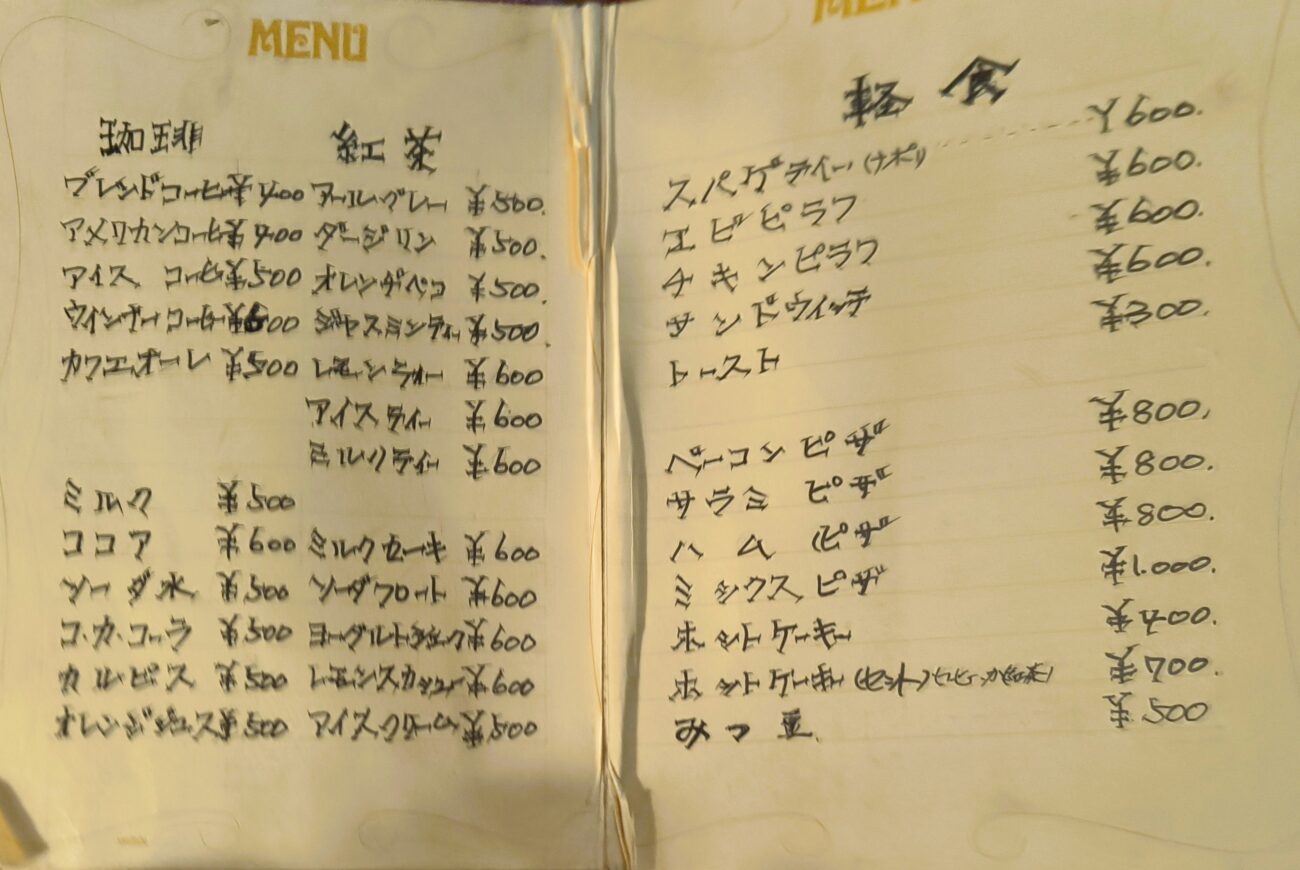 MENU
珈琲 紅茶
ブレンドコーヒー ¥400 アールグレー ¥500.
アメリカンコーヒー ¥400 ダージリン ¥500.
アイス コーヒー ¥500 オレンヂペコ ¥500.
ウインナーコーヒー ¥600 ジャスミンティー ¥500.
カフェオーレ ¥500 レモンティー ¥600
アイスティー ¥600
ミルクティー ¥600
ミルク ¥500
ココア ¥600 ミルクセーキ ¥600
ソーダ水 ¥500 ソーダフロート ¥600
コカコーラ ¥500 ヨーグルト ¥600
カルピス ¥500 レモンスカッシュ ¥600
オレンヂジュース ¥500 アイスクリーム ¥500
MENU
軽食
スパゲティー(ナポリ) ¥600.
エビピラフ ¥600.
チキンピラフ ¥600.
サンドウイッチ ¥600.
トースト ¥300.
ベーコンピザ ¥800.
サラミ ピザ ¥800.
ハム ピザ ¥800.
ミックスピザ ¥1.000.
ホットケーキ ¥400.
ホットケーキ(セット) ¥700.
みつ豆 ¥500